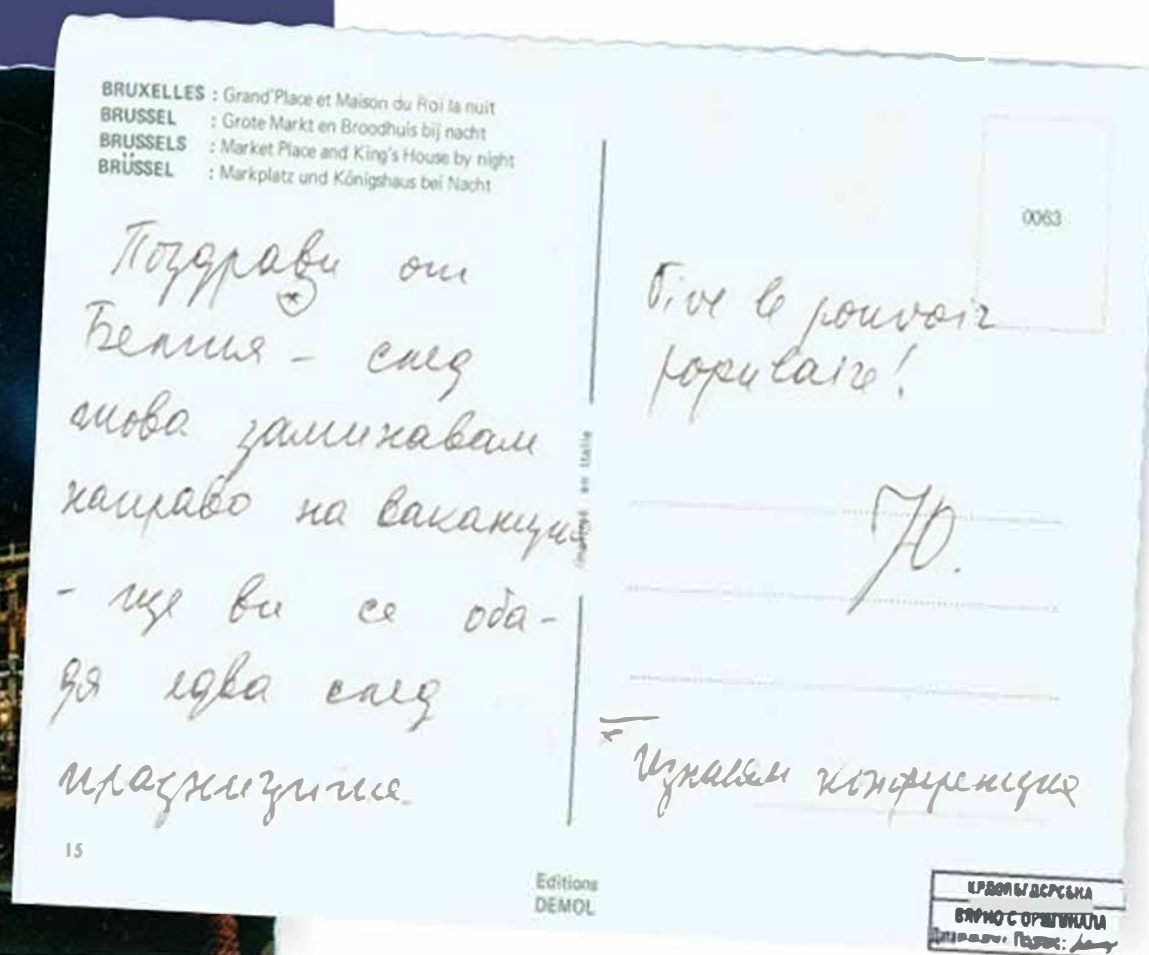 BRUXELLES : Grand'Place et Maison du Roi la nuit
BRUSSEL : Grote Markt en Broodhuis bij nacht
BRUSSELS : Market Place and King's House by night
BRÜSSEL : Markplatz und Königshaus bei Nacht
Поздрави от
Белгия - след
това заминавам
направо на ваканция
- ще ви се оба-
дя едва след
празниците.
15
0063
Vive le pouvoir
populaire!
Ю.
* конференция
en Italie
Editions
DEMOL
ВЯРНО С ОРИГИНАЛА